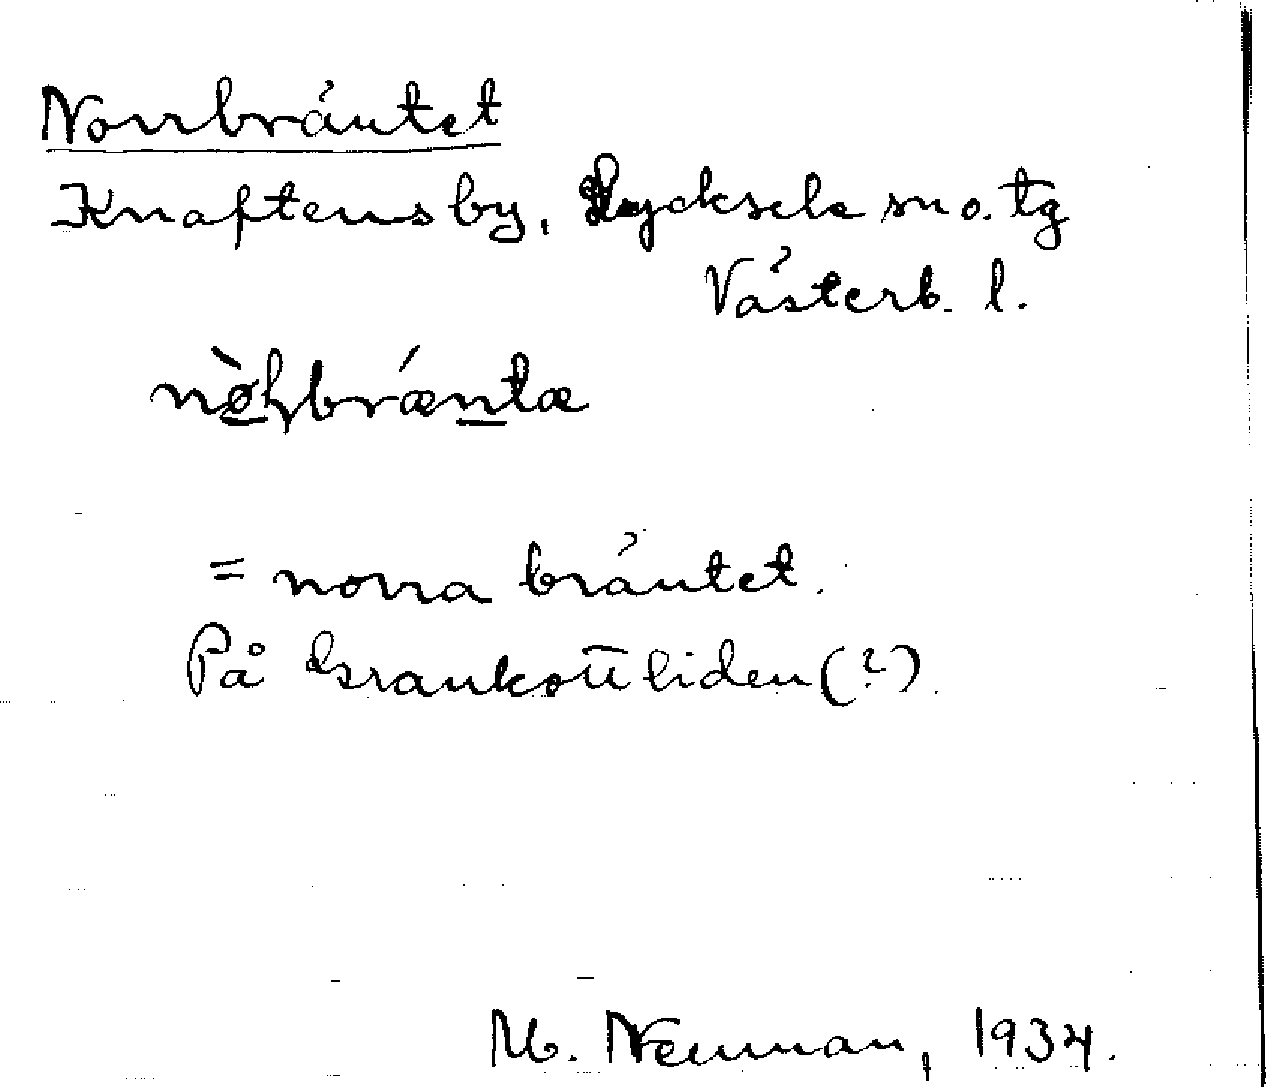 Norrbräntet
Knaftens by, Lycksele sn o. tg
Västerb. l.
nòrbrǽnta
= norra bräntet.
På Grankottliden (?)
M. Neuman, 1934.